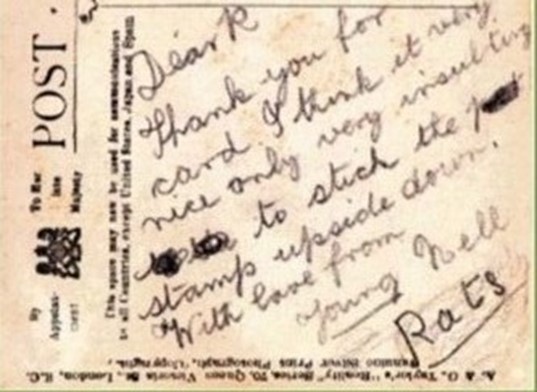 Dear K
Thank you for
card I think it very
nice only very insulting
to stick the
stamps upside down.
With love from
young Nell
Rats
POST
This space may now be used for communications
to all Countries, except United States, Japan and Spain.
By
Appoint-
ment
To His
late
Majesty
A. & G. Taylor's "Reality" Series, 70, Queen Victoria St., London, E.C.
Print Photograph. Copyright.